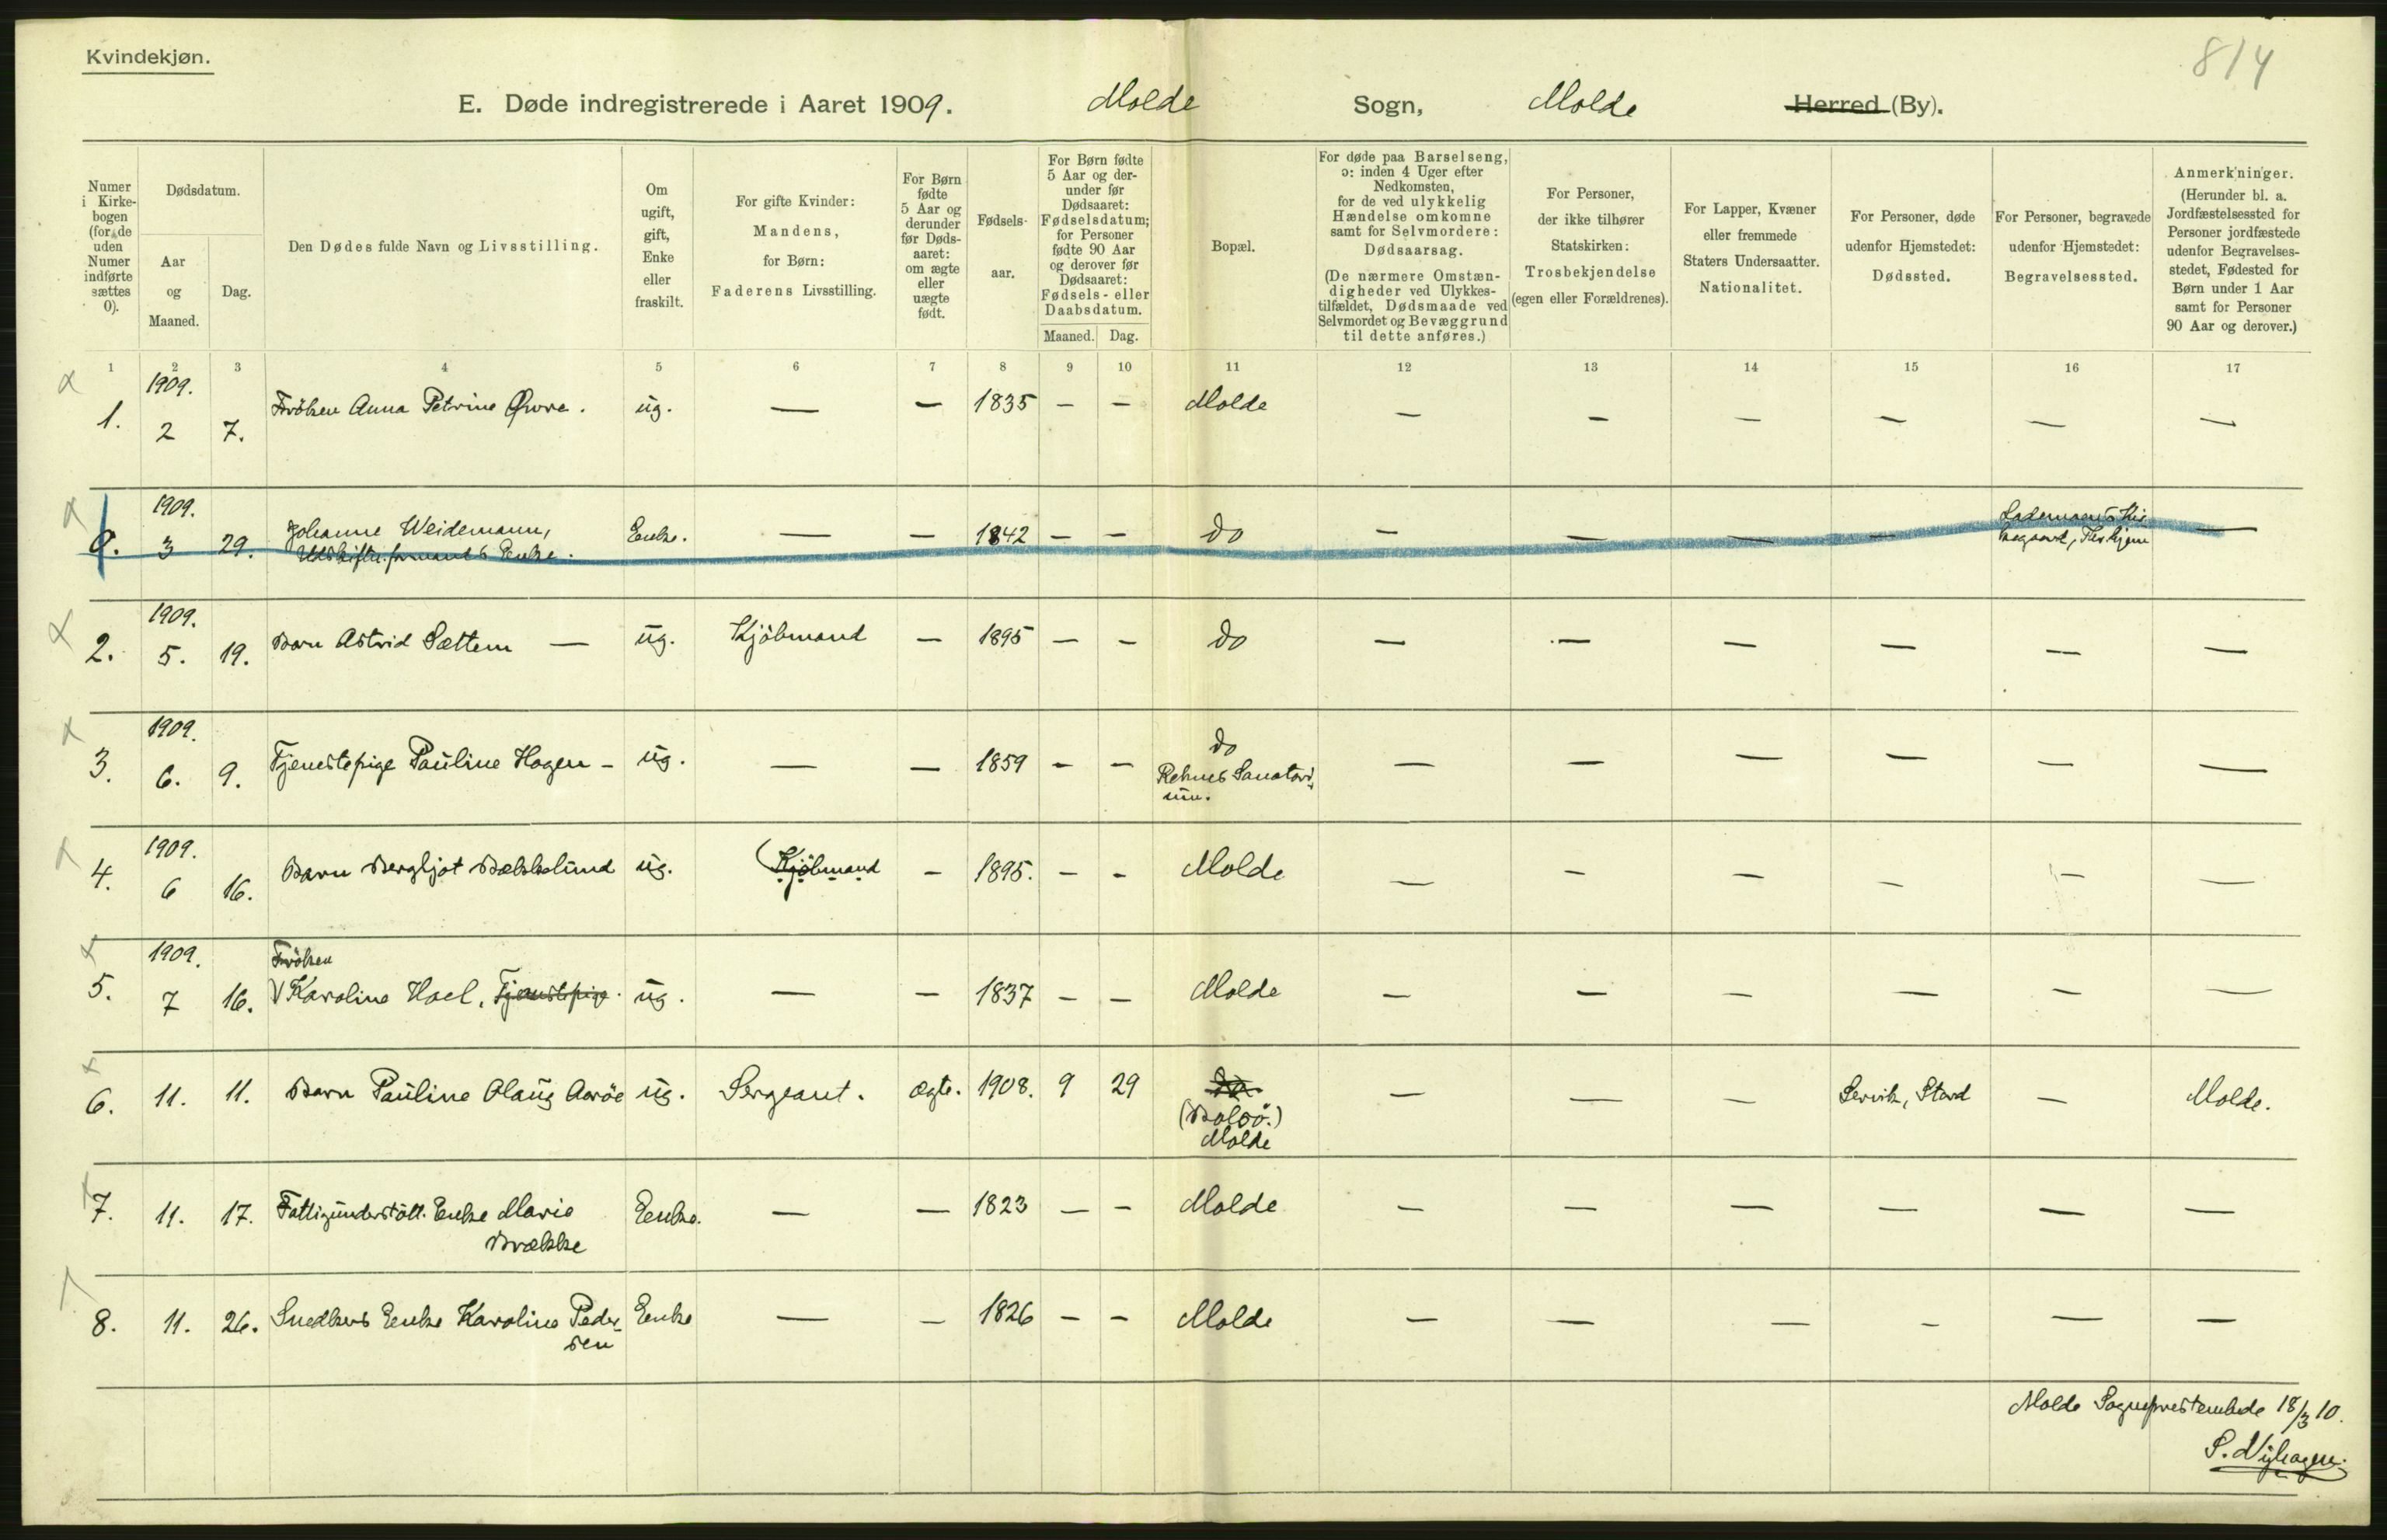 Kvindekjøn.
814
E. Døde indregistrerede i Aaret 1909. Molde Sogn, Molde Herred (By).
Numer i Kirkebogen (for de uden Numer indførte sættes 0).
Dødsdatum.
Aar og Maaned.
Dag.
Den Dødes fulde Navn og Livsstilling.
Om ugift, gift, Enke eller fraskilt.
For gifte Kvinder: Mandens, for Børn: Faderens Livsstilling.
For Børn fødte 5 Aar og derunder før Dødsaaret: om ægte eller uægte født.
Fødselsaar.
For Børn fødte 5 Aar og derunder før Dødsaaret: Fødselsdatum; for Personer fødte 90 Aar og derover før Dødsaaret: Fødsels- eller Daabsdatum.
Maaned. Dag.
Bopæl.
For døde paa Barselseng, ɔ: inden 4 Uger efter Nedkomsten, for de ved ulykkelig Hændelse omkomne samt for Selvmordere: Dødsaarsag.
(De nærmere Omstændigheder ved Ulykkestilfældet, Dødsmaade ved Selvmordet og Bevæggrund til dette anføres.)
For Personer, der ikke tilhører Statskirken: Trosbekjendelse (egen eller Forældrenes).
For Lapper, Kvæner eller fremmede Staters Undersaatter. Nationalitet.
For Personer, døde udenfor Hjemstedet: Dødssted.
For Personer, begravede udenfor Hjemstedet: Begravelsessted.
Anmerkninger.
(Herunder bl. a. Jordfæstelsessted for Personer jordfæstede udenfor Begravelsesstedet, Fødested for Børn under 1 Aar samt for Personer 90 Aar og derover.)
1 2 3 4 5 6 7 8 9 10 11 12 13 14 15 16 17
1909.
1. 2 7. Frøken Anna Petrine Øwre. ug. — — 1835 — — Molde — — — — — —
1909.
0. 3 29. Johanne Weidemann, Enke. — — 1842 — — do — — — — —
Enke.
1909.
2. 5. 19. Barn Astrid Sættem — ug. Kjöbmand — 1895 — — do — — — — — —
1909.
3. 6. 9. Tjenestepige Pauline Hagen — ug. — — 1859 — — do — — — — — —
Reknes Sanatorium.
1909.
4. 6 16. Barn Bergljot Bækkelund ug. Kjöbmand — 1895. — — Molde — — — — — —
1909.
Fröken
5. 7 16. Karoline Hoel, Tjenestepige. ug. — — 1837 — — Molde — — — — — —
6. 11. 11. Barn Pauline Olaug Aaröe ug. Sergeant. ægte. 1908. 9 29 do — — — Stard — Molde.
(Bolsö.)
Molde
7. 11. 17. Fattigunderstött. Enke Marie Enke. — — 1823 — — Molde — — — — — —
Brække
8. 11. 26. Snedkers Enke Karoline Peder- Enke — — 1826 — — Molde — — — — — —
sen
Molde Sogneprestembede 18/3 10.
S. Nyhagen.